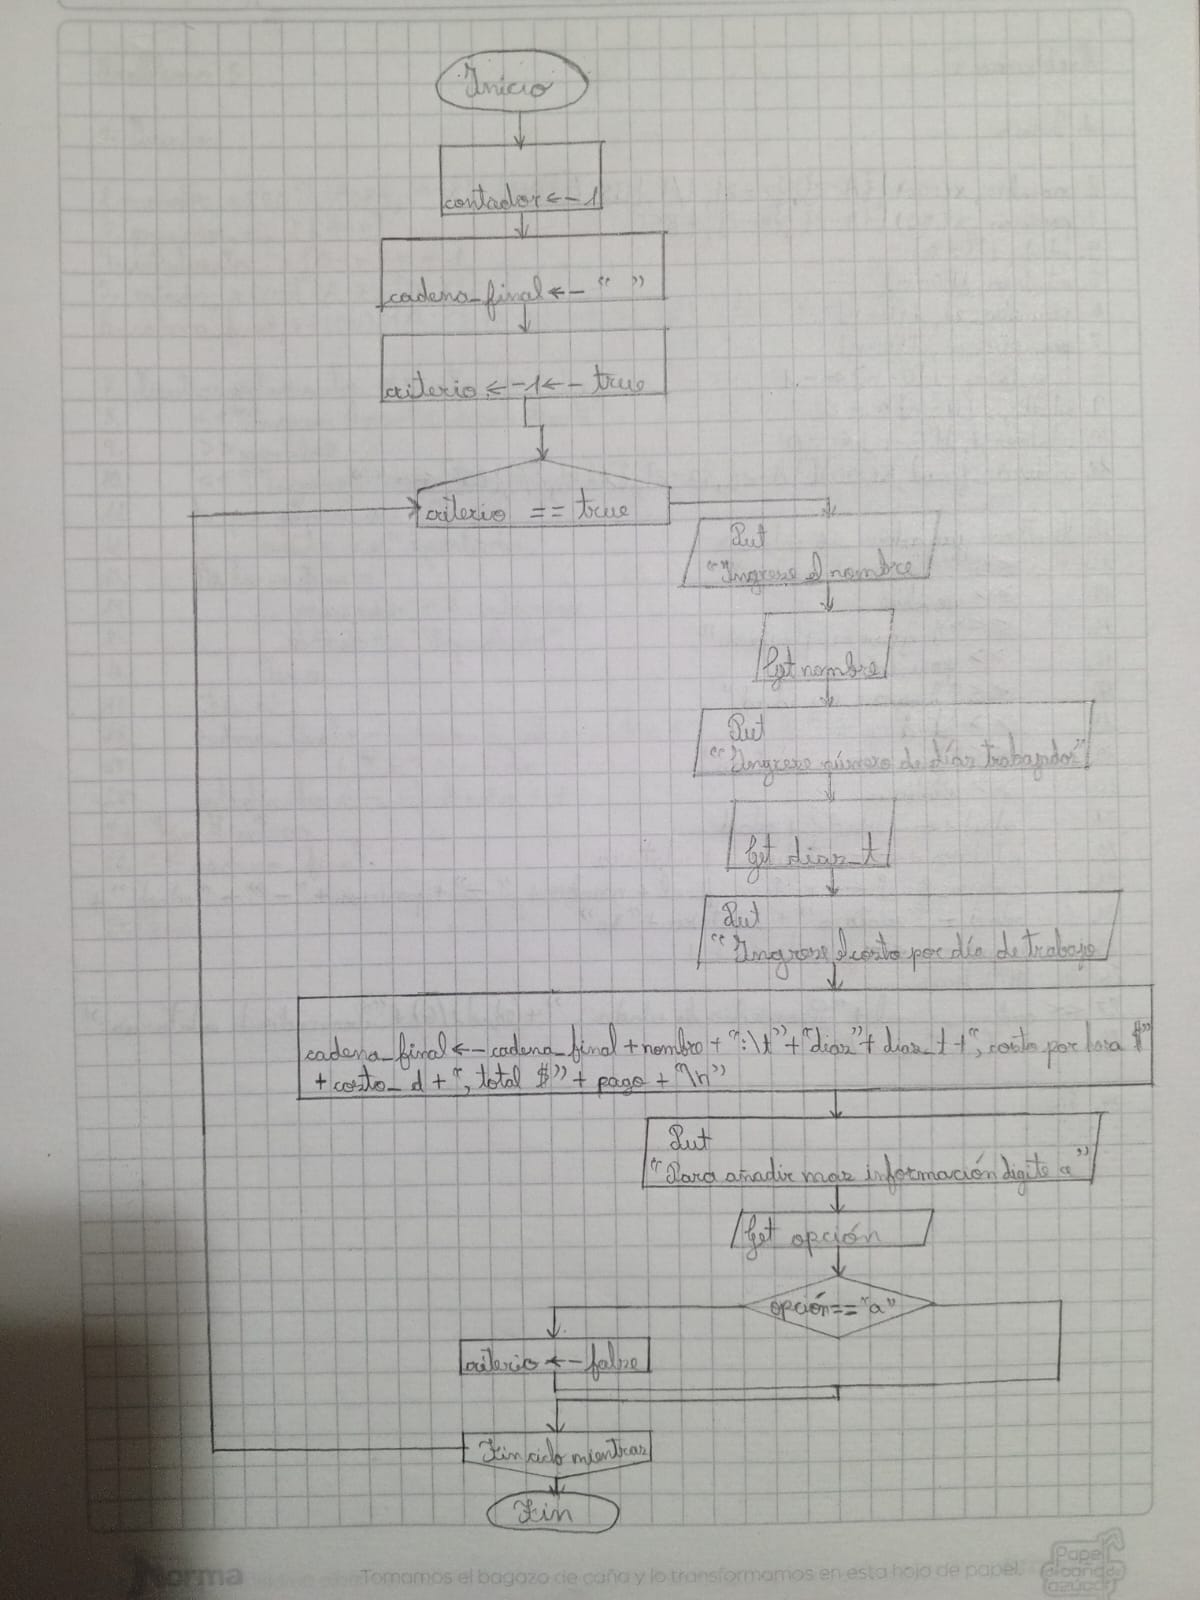 Inicio
contador <-- 1
cadena_final <-- " "
criterio <-1<- true
criterio == true
Put
"Ingrese el nombre
Get nombre
Put
"Ingrese número de días trabajados"
Get dias_t
Put
"Ingrese el costo por día de trabajo
cadena_final <-- cadena_final + nombre + ":\t" + "dias" + dias_t + ", costo por hora $"
+ costo_d + ", total $" + pago + "\n"
Put
"Para añadir mas información digite a"
Get opción
opción == "a"
criterio <-- false
Fin ciclo mientras
Fin
norma
Tomamos el bagazo de caña y lo transformamos en esta hoja de papel.
Papel
de caña de
azúcar